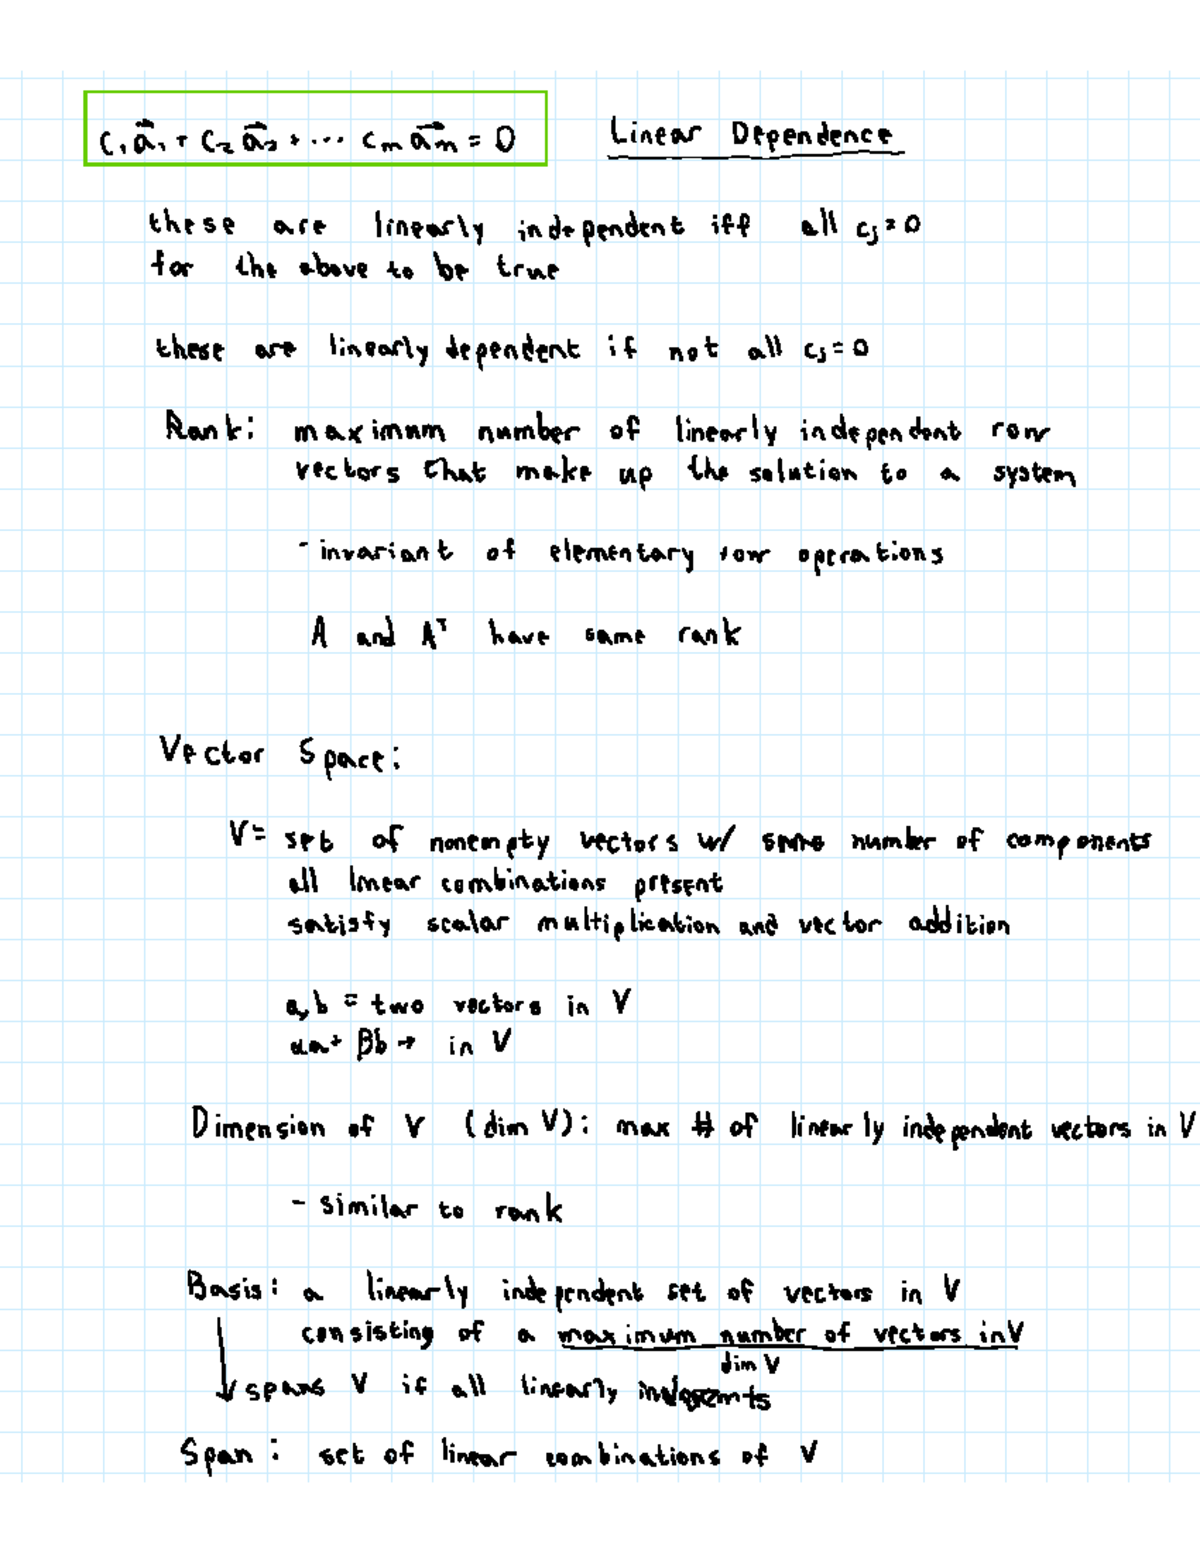 c₁a⃗₁ + c₂a⃗₂ + ··· cₘa⃗ₘ = 0 Linear Dependence
these are linearly independent iff all cⱼ = 0
for the above to be true
these are linearly dependent if not all cⱼ = 0
Rank: maximum number of linearly independent row
vectors that make up the solution to a system
- invariant of elementary row operations
A and Aᵀ have same rank
Vector Space:
V = set of nonempty vectors w/ same number of components
all linear combinations present
satisfy scalar multiplication and vector addition
a, b = two vectors in V
αa + βb → in V
Dimension of V (dim V): max # of linearly independent vectors in V
- similar to rank
Basis: a linearly independent set of vectors in V
consisting of a maximum number of vectors in V
dim V
↓ spans V if all linearly
Span: set of linear combinations of V